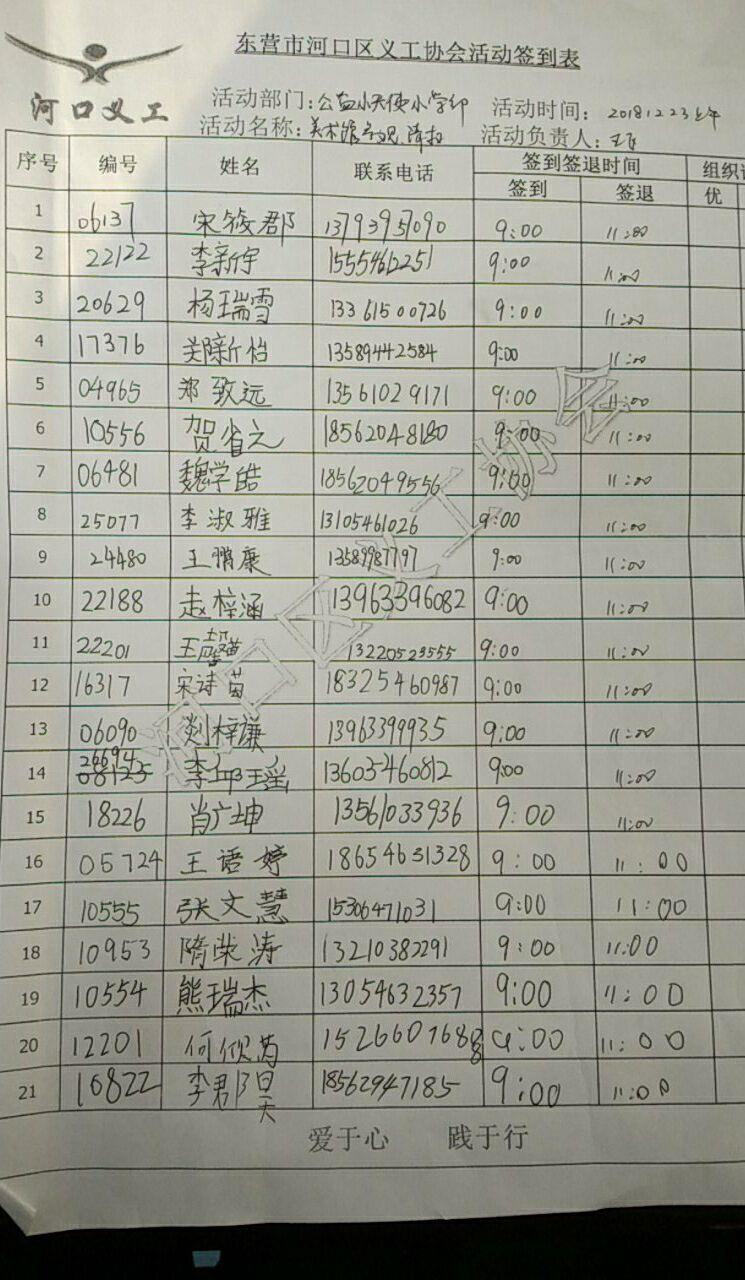 东营市河口区义工协会活动签到表
河口义工
活动部门:公益小天使小学部 活动时间: 20181223上午
活动名称:美术馆 活动负责人:
序号 编号 姓名 联系电话 签到签退时间 组织
签到 签退 优
1 06137 宋筱郡 13793957090 9:00 11:00
2 22122 李新宇 15554612251 9:00 11:00
3 20629 杨瑞雪 13361500726 9:00 11:00
4 17376 13589442584 9:00 11:00
5 04965 郑致远 13561029171 9:00 11:00
6 10556 贺省元 18562048180 9:00 11:00
7 06481 魏学皓 18562049556 9:00 11:00
8 25077 李淑雅 13105461026 9:00 11:00
9 24480 王鹏康 13589987797 9:00 11:00
10 22188 赵梓涵 13963396082 9:00 11:00
11 22201 王馨苗 13220523555 9:00 11:00
12 16317 宋诗苗 18325460987 9:00 11:00
13 06090 刘梓谦 13963399935 9:00 11:00
14 26694 08123 李邱瑶 13605460812 9:00 11:00
15 18226 肖广坤 13561033936 9:00 11:00
16 05724 王语婷 18654631328 9:00 11:00
17 10555 张文慧 15306471031 9:00 11:00
18 10953 隋荣涛 13210382291 9:00 11:00
19 10554 熊瑞杰 13054632357 9:00 11:00
20 12201 何佩芮 15266076888 9:00 11:00
21 10822 李郡昊 18562947185 9:00 11:00
爱于心 践于行
河口区义工协会